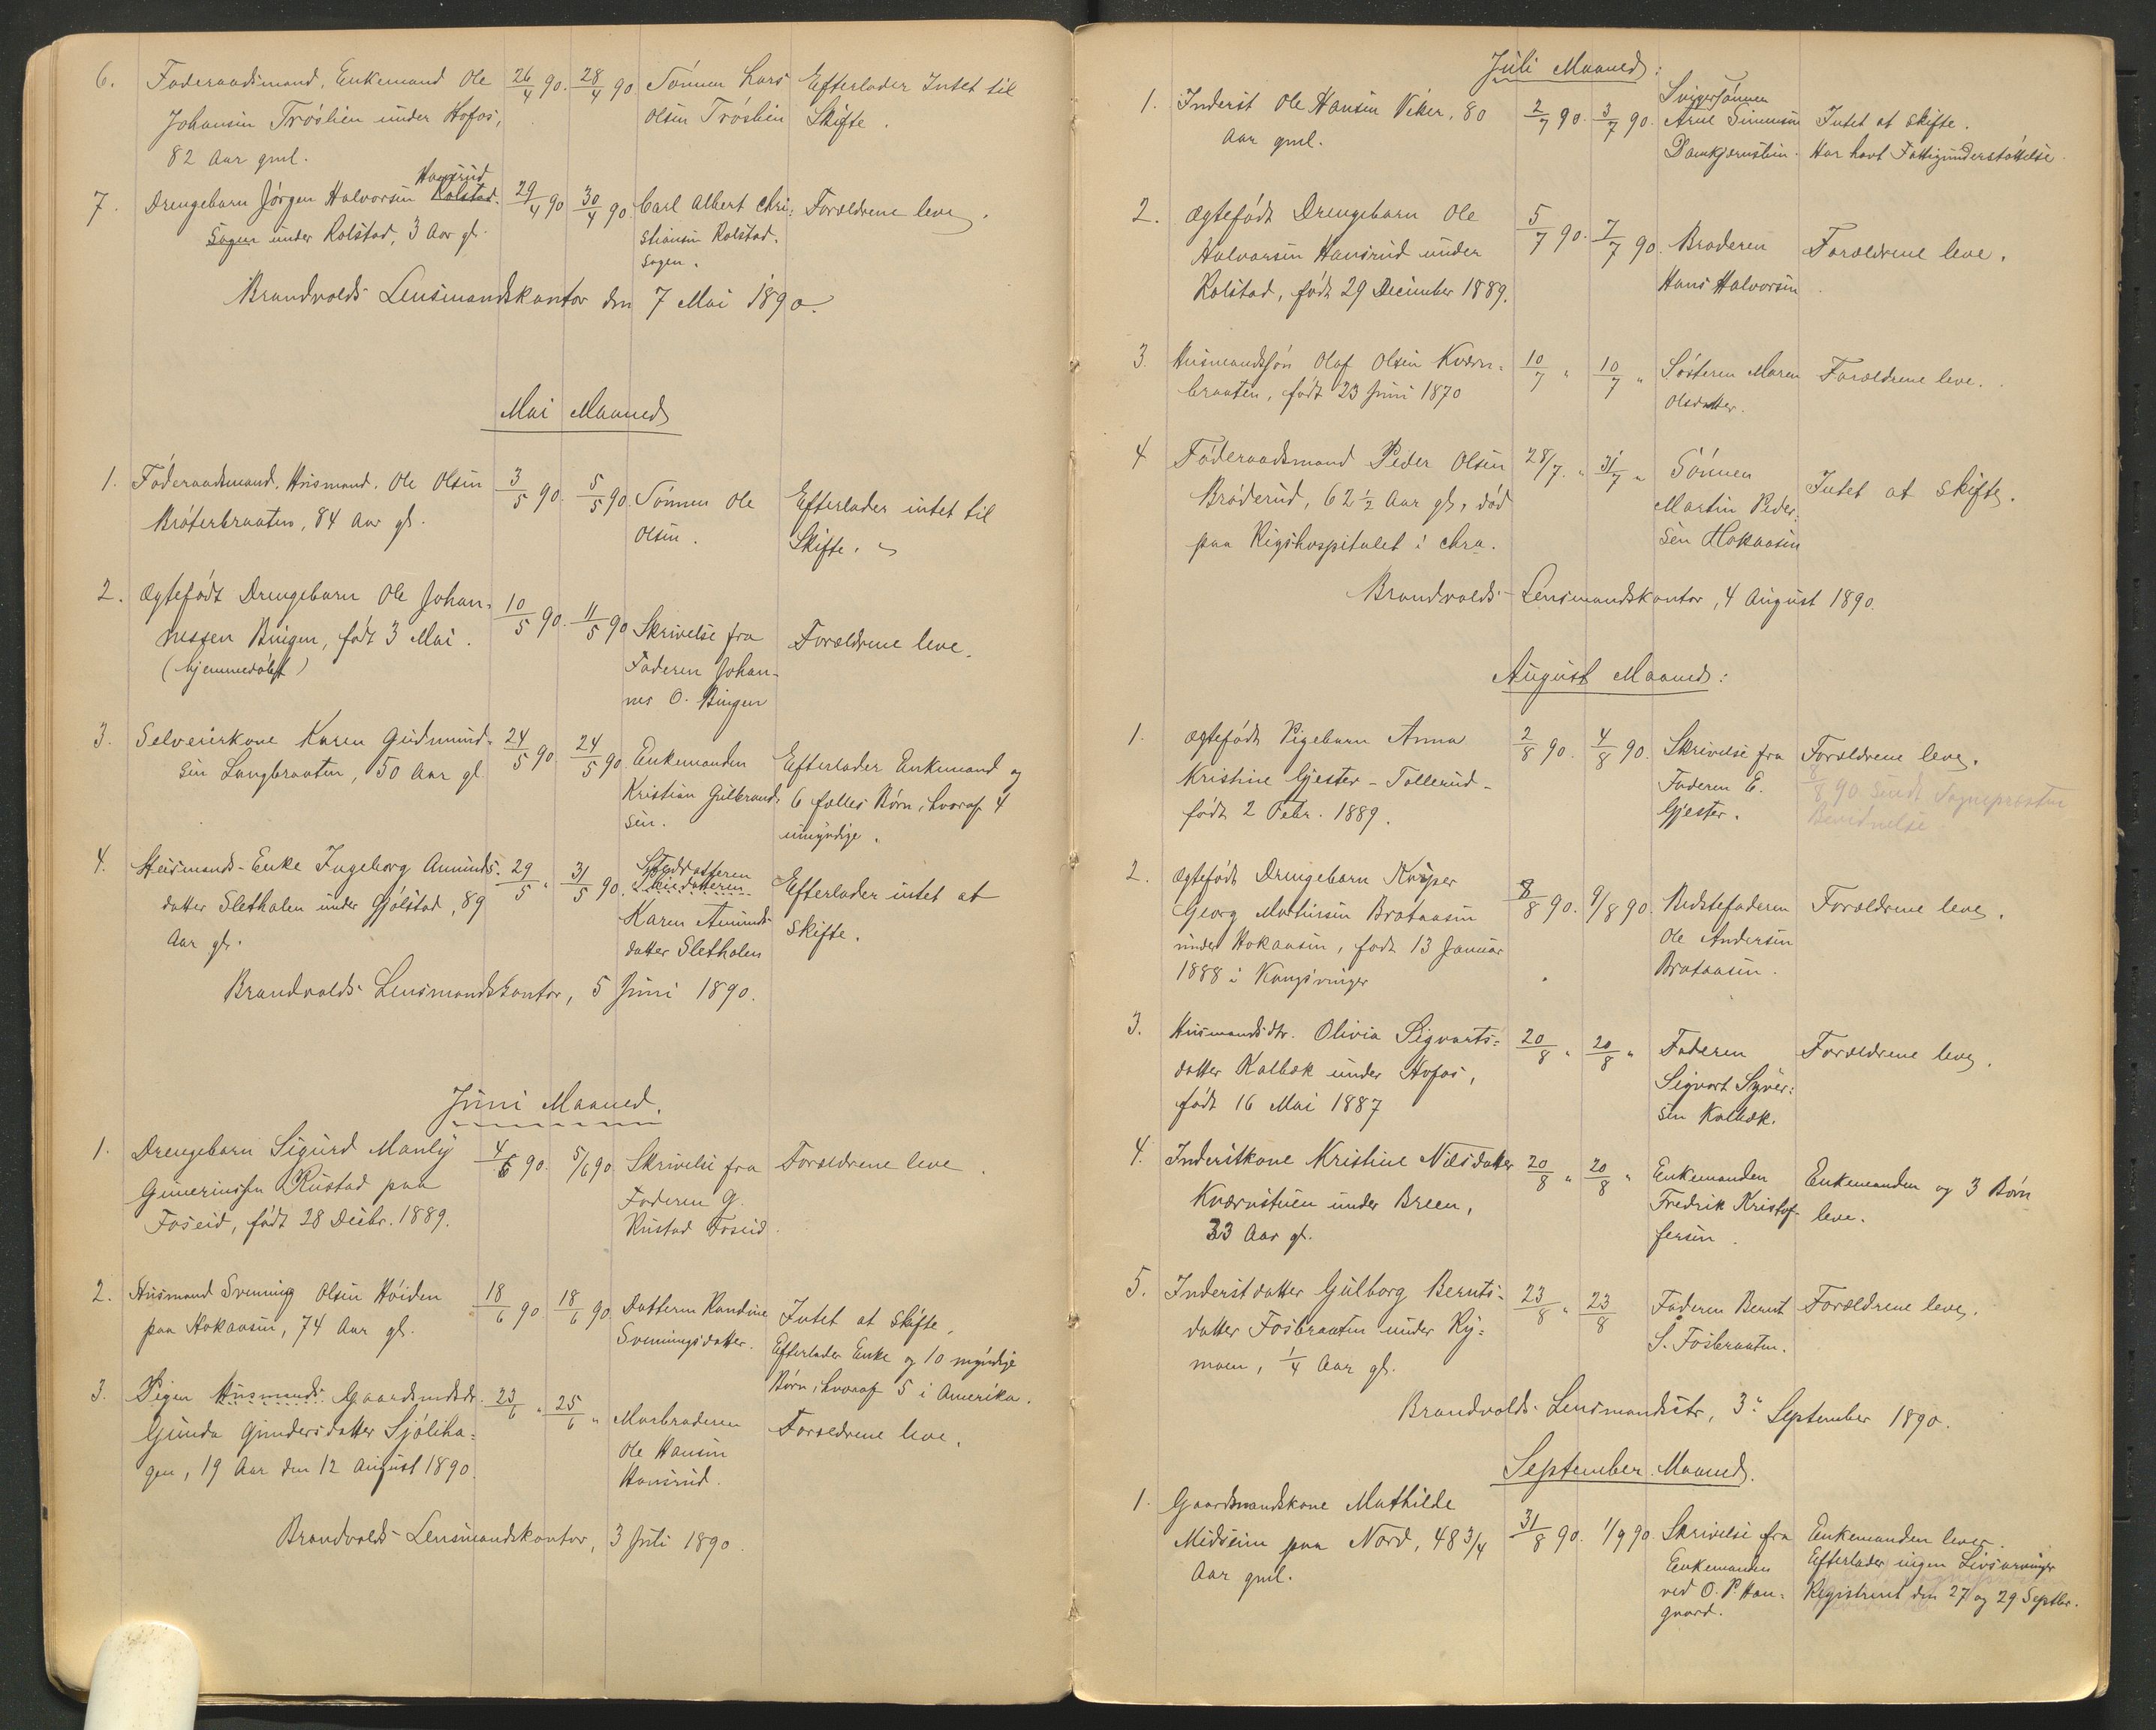 6. Føderaadsmand, Enkemand Ole 26/4 90. 28/4 90 Sønnen Lars Efterlader Intet til
Johansen Trøslien under Hofos, Olsen Trøslien Skifte.
82 Aar gml.
Hansrud
7. Drengebarn Jørgen Halvorsen Rolstad. 29/4 90 30/4 90. Carl Albert Chri- Forældrene leve.
Sagen under Rolstad, 3 Aar gl. stiansen Rolstad.
sagen.
Brandvolds Lensmandskontor den 7 Mai 1890.
Mai Maaned
1. Føderaadsmand, Husmand. Ole Olsen 3/5 90. 5/5 90. Sønnen Ole Efterlader intet til
Brøterbraaten, 84 Aar gl. Olsen. Skifte.
2. Ægtefødt Drengebarn Ole Johan- 10/5 90. 11/5 90 Skrivelse fra Forældrene leve.
nessen Bingen, født 3 Mai. Faderen Johan-
(hjemmedøbt) nes O. Bingen
3. Selveierkone Karen Gudmund- 24/5 90. 24/5 90. Enkemanden Efterlader Enkemand og
sen Langbraaten, 50 Aar gl. Kristian Gulbrand- 6 fælles Børn, hvoraf 4
sen. umyndige.
4. Husmands-Enke Ingeborg Amunds- 29/5 " 31/5 90. Steddatteren Efterlader intet at
datter Slethalen under Gjølstad, 89 Karen Amunds- skifte.
Aar gl. datter Slethalen
Brandvolds Lensmandskontor, 5 Juni 1890.
Juni Maaned.
1. Drengebarn Sigurd Manly 4/6 90. 5/6 90 Skrivelse fra Forældrene leve.
Gunerius Rustad paa Faderen G.
Foseid, født 28 Decbr. 1889. Rustad Foseid.
2. Husmand Svenning Olsen Høiden 18/6 90 18/6 90 Datteren Randine Intet at skifte,
paa Hokaasen, 74 Aar gl. Svenningsdatter. Efterlader Enke og 10 myndige
Børn, hvoraf 5 i Amerika.
3. Pigen Husmands Gaardmdsdr. 23/6 " 25/6 " Morbroderen Forældrene leve.
Gunda Gundersdatter Sjøliha- Ole Hansen
gen, 19 Aar den 12 August 1890. Hansrud.
Brandvolds Lensmandskontor, 3 Juli 1890.
Juli Maaned:
Svigersønnen
1. Inderst Ole Hansen Viker, 80 2/7 90. 3/7 90. Arne Simensen Intet at skifte.
Aar gml. Damkjernslien. Har havt Fattigunderstøttelse.
2. Ægtefødt Drengebarn Ole 5/7 90. 7/7 90. Broderen Forældrene leve.
Halvorsen Hansrud under Hans Halvorsen
Rolstad, født 29 December 1889.
3. Husmandssøn Olaf Olsen Kværn- 10/7 " 10/7 " Søsteren Maren Forældrene leve.
braaten, født 23 Juni 1870 Olsdatter.
4 Føderaadsmand Peder Olsen 28/7. " 31/7 " Sønnen Intet at skifte.
Brøderud, 62 1/2 Aar gl., død Martin Peder-
paa Rigshospitalet i Chra. sen Hokaasen
Brandvolds Lensmandskontor, 4 August 1890.
August Maaned:
1. Ægtefødt Pigebarn Anna 2/8 90. 4/8 90. Skrivelse fra Forældrene leve.
Kristine Gjester - Tollerud - Faderen E. 8/8 90. Sendt Sognepræsten
født 2 Febr. 1889. Gjester. Bevidnelse
2. Ægtefødt Drengebarn Kasper 8/8 90. 9/8 90. Bedstefaderen Forældrene leve.
Georg Mathisen Brataasen Ole Andersen
under Hokaasen, født 13 Januar Brataasen.
1888 i Kongsvinger
3. Husmandsdtr. Olivia Sigvarts- 20/8 " 20/8 " Faderen Forældrene leve.
datter Kalbæk under Hofos, Sigvart Syver-
født 16 Mai 1887 sen Kalbæk.
4. Inderstkone Kristine Nilsdatter 20/8 " 20/8 " Enkemanden Enkemanden og 3 Børn
Kværnstuen under Breen, Fredrik Kristof- leve.
33 Aar gl. fersen.
5. Inderstdatter Gulborg Bernts- 23/8 " 23/8 Faderen Bernt Forældrene leve.
datter Fosbraaten under Ry- S. Fosbraaten.
moen, 1/4 Aar gl.
Brandvolds Lensmandsctr, 3. September 1890.
September Maaned.
1. Gaardmandskone Mathilde 31/8 90. 1/9 90. Skrivelse fra Enkemanden lever.
Midseim paa Nord, 48 3/4 Enkemanden Efterlader ingen Livsarvinger
Aar gml. ved O. P. Hau- Registreret den 27 og 29 Septbr.
gaard.